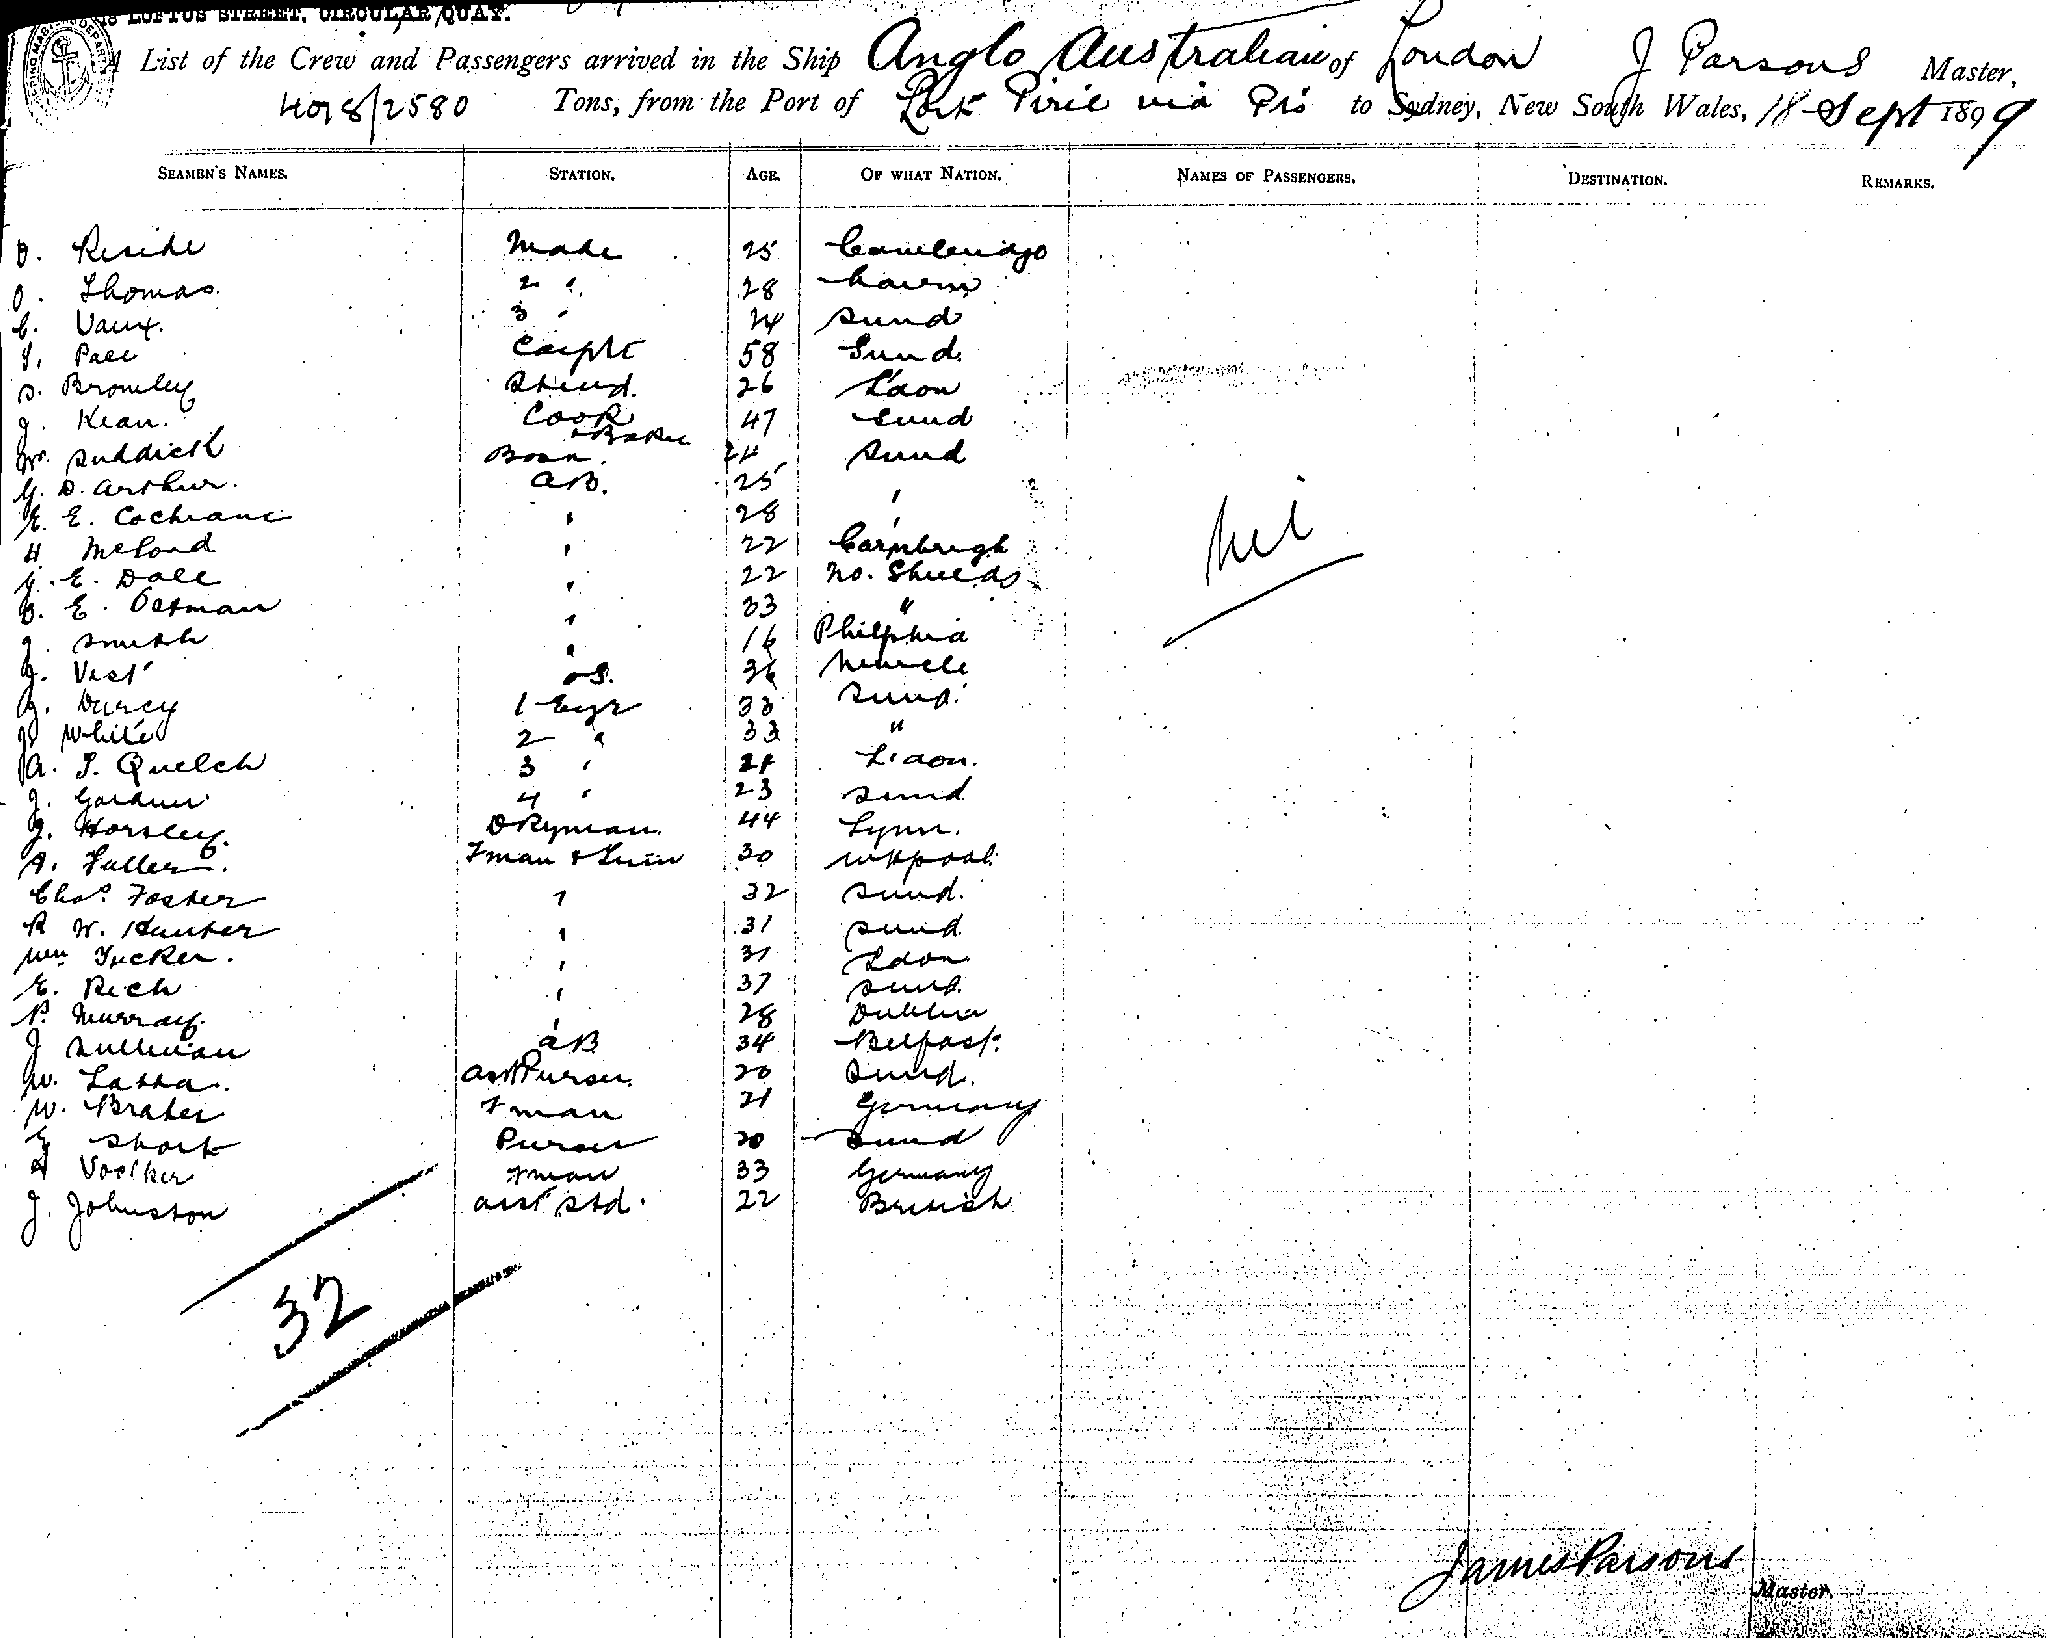 LOFTUS STREET, CIRCULAR QUAY.
A List of the Crew and Passengers arrived in the Ship Anglo Australian of London J Parsons Master,
4018/2580 Tons, from the Port of Port Pirie via to Sydney, New South Wales, 18 Sept 1899
SEAMEN'S NAMES. STATION. AGE. OF WHAT NATION. NAMES OF PASSENGERS. DESTINATION. REMARKS.
Mate 25
O. Thomas. 2 " 28
C. Vaux. 3 " 24 Sund
58 Sund.
S. Bromley Steud. 26 L'don
J. Kean. Cook 47 Sund
& Baker
Wm. Suddick Bosn. 24 Sund
G. D. Arthur. A.B. 25 "
E. E. Cochrane " 28 "
H 22
J. E. Dale " 22 No. Shields
E. 33 "
J. Smith " 16 Philphia
J. Vest O.S. 36 Newcle
Darcy 1 Engr 33 Sund.
J. White 2 " 33 "
A. T. Quelch 3 " 24 L'don.
J. Gardner 4 " 23 Sund
J. Horsley. Dkyman 44 Lynn.
A. Fuller. Fman & Trim 30 Whpool.
Chas. Foster " 32 Sund.
R W. Hunter " 31 Sund
Wm Tucker. " 31 Ldon
E. Rich " 37 Sund.
P. Murray. " 28 Dublin
J Sullivan A.B 34 Belfast.
W. Latta. Asst Purser. 20 Sund.
W. Braker Fman 21 Germany
Short Purser 20 Sund
Voelker Fman 33 Germany
J. Johnston Asst Std. 22 British
Nil
32
James Parsons
Master.